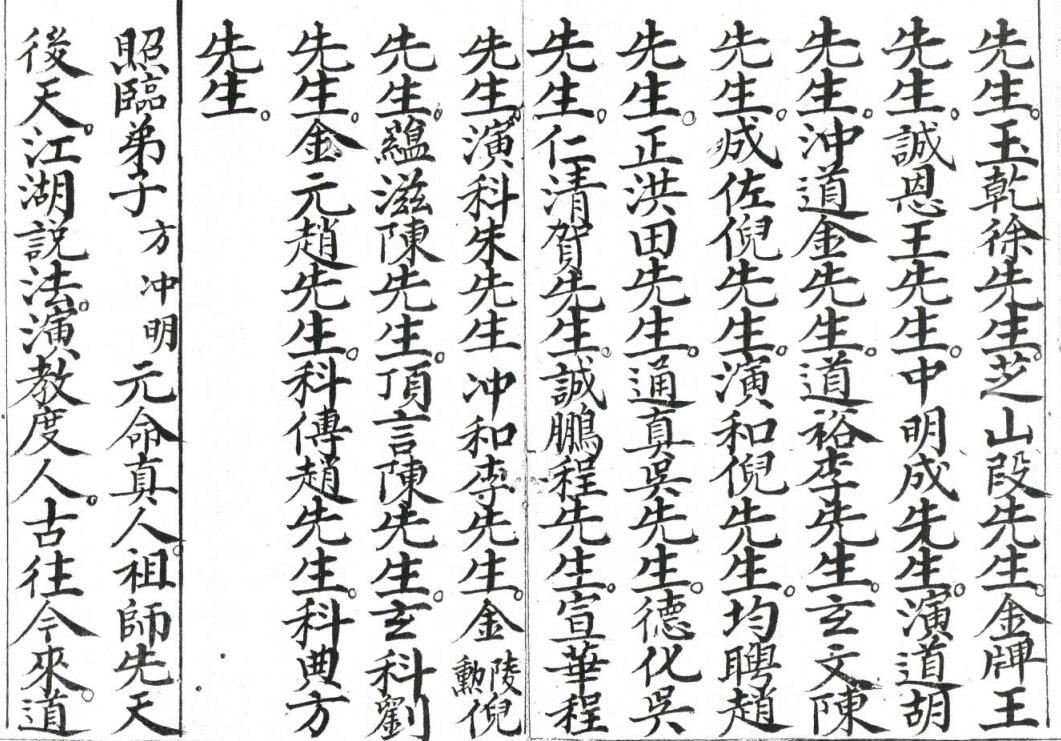 先生。玉乾徐先生。芝山段先生。金牌王
先生。誠恩王先生。中明成先生。演道胡
先生。沖道金先生。道裕李先生。玄文陳
先生。成佐倪先生。演和倪先生。均聘趙
先生。正洪田先生。通真吳先生。德化吳
先生。仁清賀先生。誠鵬程先生。宣華程
先生。演科朱先生 沖和李先生。金陵勲倪
先生。蘊滋陳先生。頂言陳先生。玄科劉
先生。金元趙先生。科傳趙先生。科典方
先生。
照臨弟子 方冲明 元命真人。祖師先天
後天。江湖説法。演教度人。古往今來。道